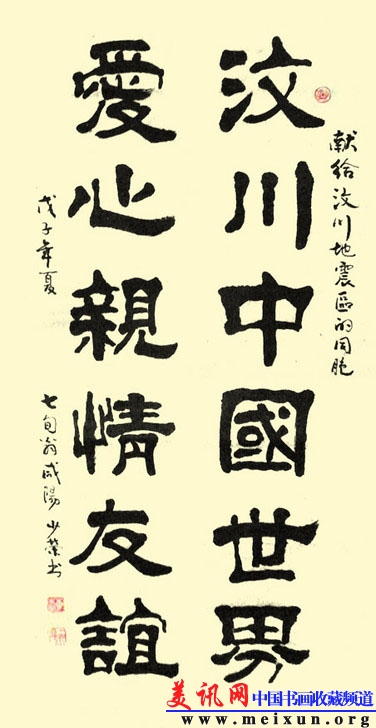 献给汶川地震区的同胞
汶川中國世界
愛心親情友誼
戊子年夏
七旬翁咸陽少榮书
美讯网 中国书画收藏频道
www.meixun.org